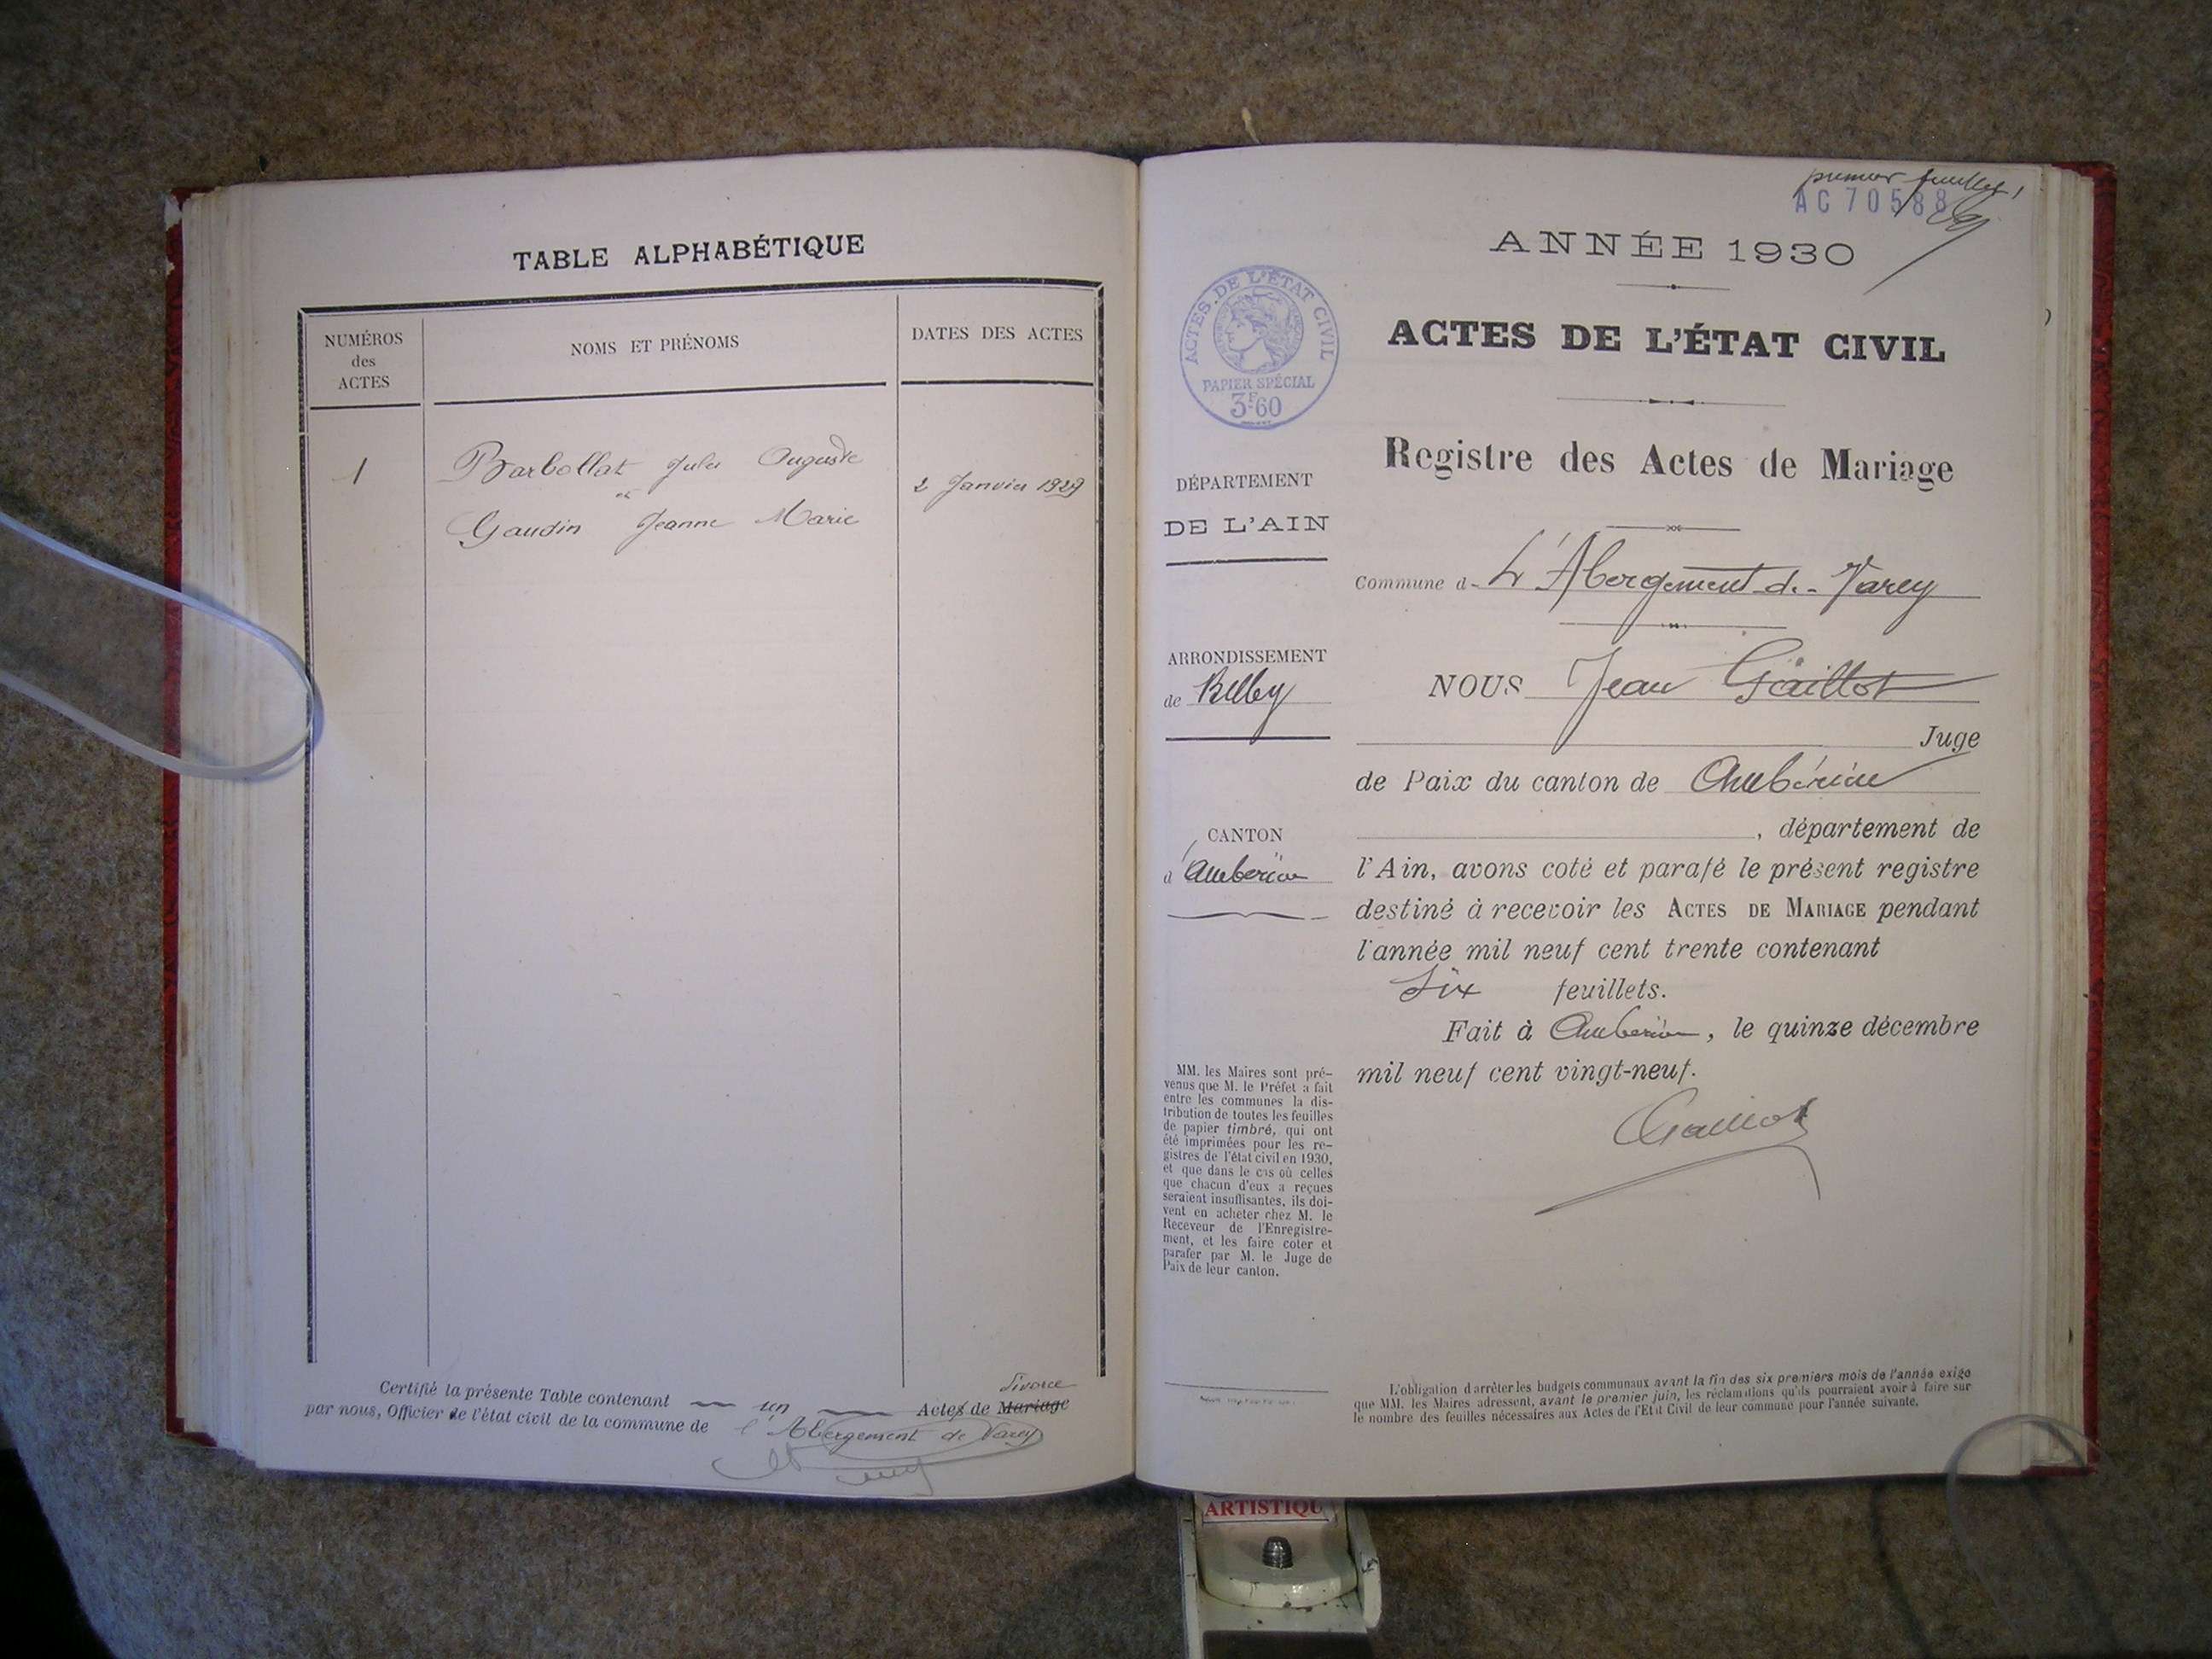 TABLE ALPHABÉTIQUE
NUMÉROS
des
ACTES
NOMS ET PRÉNOMS
DATES DES ACTES
1
Barbollat Jules Auguste
et
Gaudin Jeanne Marie
2 Janvier 1929
Certifié la présente Table contenant un Actes de Mariage divorce
par nous, Officier de l'état civil de la commune de l'Abergement de Varey
premier feuillet
AC 70588
ANNÉE 1930
ACTES DE L'ÉTAT CIVIL
PAPIER SPÉCIAL
3F60
ACTES DE L'ÉTAT CIVIL
Registre des Actes de Mariage
DÉPARTEMENT
DE L'AIN
Commune d L'Abergement-de-Varey
ARRONDISSEMENT
de Belley
NOUS Jean Gaillot
Juge
de Paix du canton de Ambérieu
CANTON
d'Ambérieu
, département de
l'Ain, avons coté et parafé le présent registre
destiné à recevoir les ACTES DE MARIAGE pendant
l'année mil neuf cent trente contenant
Six feuillets.
Fait à Ambérieu, le quinze décembre
mil neuf cent vingt-neuf.
Gaillot
MM. les Maires sont pré-
venus que M. le Préfet a fait
entre les communes la dis-
tribution de toutes les feuilles
de papier timbré, qui ont
été imprimées pour les re-
gistres de l'état civil en 1930,
et que dans le cas où celles
que chacun d'eux a reçues
seraient insuffisantes, ils doi-
vent en acheter chez M. le
Receveur de l'Enregistre-
ment, et les faire coter et
parafer par M. le Juge de
Paix de leur canton.
L'obligation d'arrêter les budgets communaux avant la fin des six premiers mois de l'année exige
que MM. les Maires adressent, avant le premier juin, les réclamations qu'ils pourraient avoir à faire sur
le nombre des feuilles nécessaires aux Actes de l'Etat Civil de leur commune pour l'année suivante.
ARTISTIQU